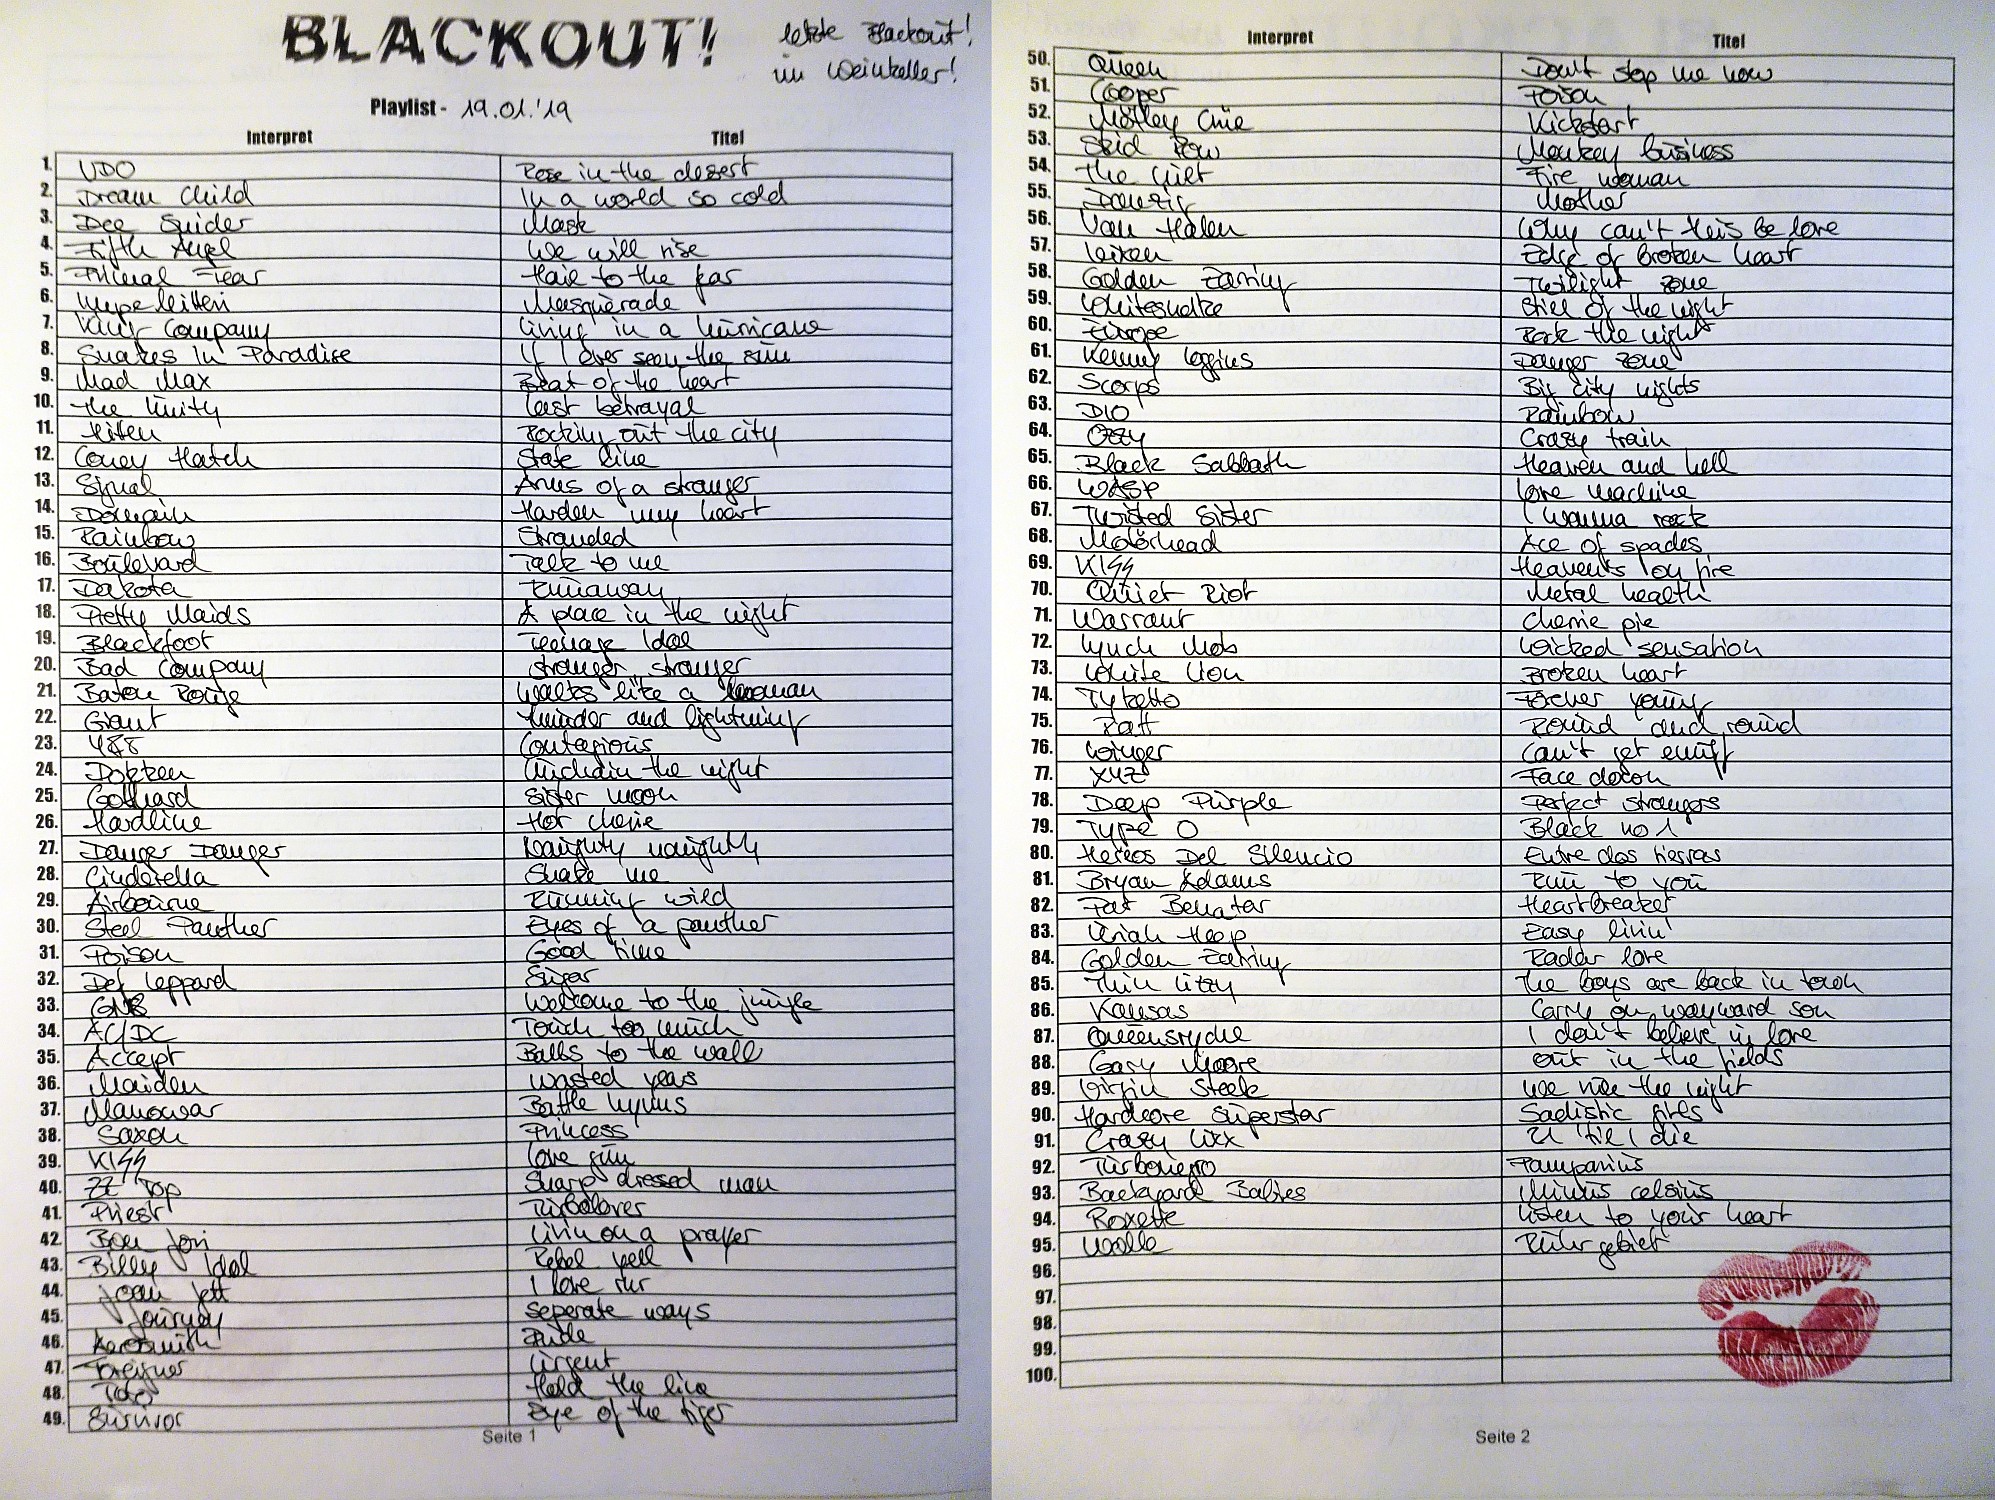 BLACKOUT!
letzte Blackout!
im Weinkeller!
Playlist - 19.01.'19
Interpret Titel
1. UDO Rose in the desert
2. Dream Child In a world so cold
3. Dee Snider Mask
4. Fifth Angel We will rise
5. Primal Fear Hail to the fear
6. Masquerade
7. Vain Company Living in a hurricane
8. Snakes In Paradise If I ever seen the sun
9. Mad Max Beat of the heart
10. The Unity Last betrayal
11. Hitten Rocking out the city
12. Coney Hatch State line
13. Signal Arms of a stranger
14. Domain Harden my heart
15. Rainbow Stranded
16. Boulevard Talk to me
17. Dakota Runaway
18. Pretty Maids A place in the night
19. Blackfoot Teenage Idol
20. Bad Company stranger stranger
21. Baton Rouge Walks like a woman
22. Giant thunder and lightning
23. Y&T Contagious
24. Dokken Unchain the night
25. Gotthard Sister moon
26. Hardline Hot cherie
27. Danger Danger Naughty naughty
28. Cinderella Shake me
29. Airbourne Running wild
30. Steel Panther Eyes of a panther
31. Poison Good time
32. Def Leppard Sugar
33. GNR Welcome to the jungle
34. AC/DC Touch too much
35. Accept Balls to the wall
36. Maiden Wasted years
37. Manowar Battle hymns
38. Saxon Princess
39. KISS Love gun
40. ZZ Top Sharp dressed man
41. Priest Turbolover
42. Bon Jovi Livin on a prayer
43. Billy Idol Rebel yell
44. Joan Jett I love rnr
45. Journey Seperate ways
46. Aerosmith
47. Foreigner Urgent
48. Toto Hold the line
49. Survivor Eye of the tiger
Seite 1
Interpret Titel
50. Queen Don't stop me now
51. Cooper Poison
52. Mötley Crüe Kickstart
53. Skid Row Monkey business
54. The Cult Fire woman
55. Danzig Mother
56. Van Halen Why can't this be love
57. Vixen Edge of broken heart
58. Golden Earring Twilight zone
59. Whitesnake Still of the night
60. Europe Rock the night
61. Kenny Loggins Danger zone
62. Scorps Big city nights
63. DIO Rainbow
64. Ozzy Crazy train
65. Black Sabbath Heaven and hell
66. WASP Love machine
67. Twisted Sister I wanna rock
68. Motörhead Ace of spades
69. KISS Heaven's on fire
70. Quiet Riot Metal health
71. Warrant Cherrie pie
72. Lynch Mob Wicked sensation
73. White Lion Broken heart
74. Tyketto Forever young
75. Ratt Round and round
76. Winger Can't get enuff
77. XYZ Face down
78. Deep Purple Perfect strangers
79. Type O Black no 1
80. Heroes Del Silencio Entre dos tierras
81. Bryan Adams Run to you
82. Pat Benatar Heartbreaker
83. Uriah Heep Easy livin'
84. Golden Earring Radar love
85. Thin Lizzy The boys are back in town
86. Kansas Carry on wayward son
87. Queensryche I don't believe in love
88. Gary Moore Out in the fields
89. Virgin Steele We rule the night
90. Hardcore Superstar Sadistic girls
91. Crazy Lixx 21 'til I die
92. Turbonegro Pamparius
93. Backyard Babies Minus celsius
94. Roxette Listen to your heart
95. Wolle Ruhrgebiet
96.
97.
98.
99.
100.
Seite 2